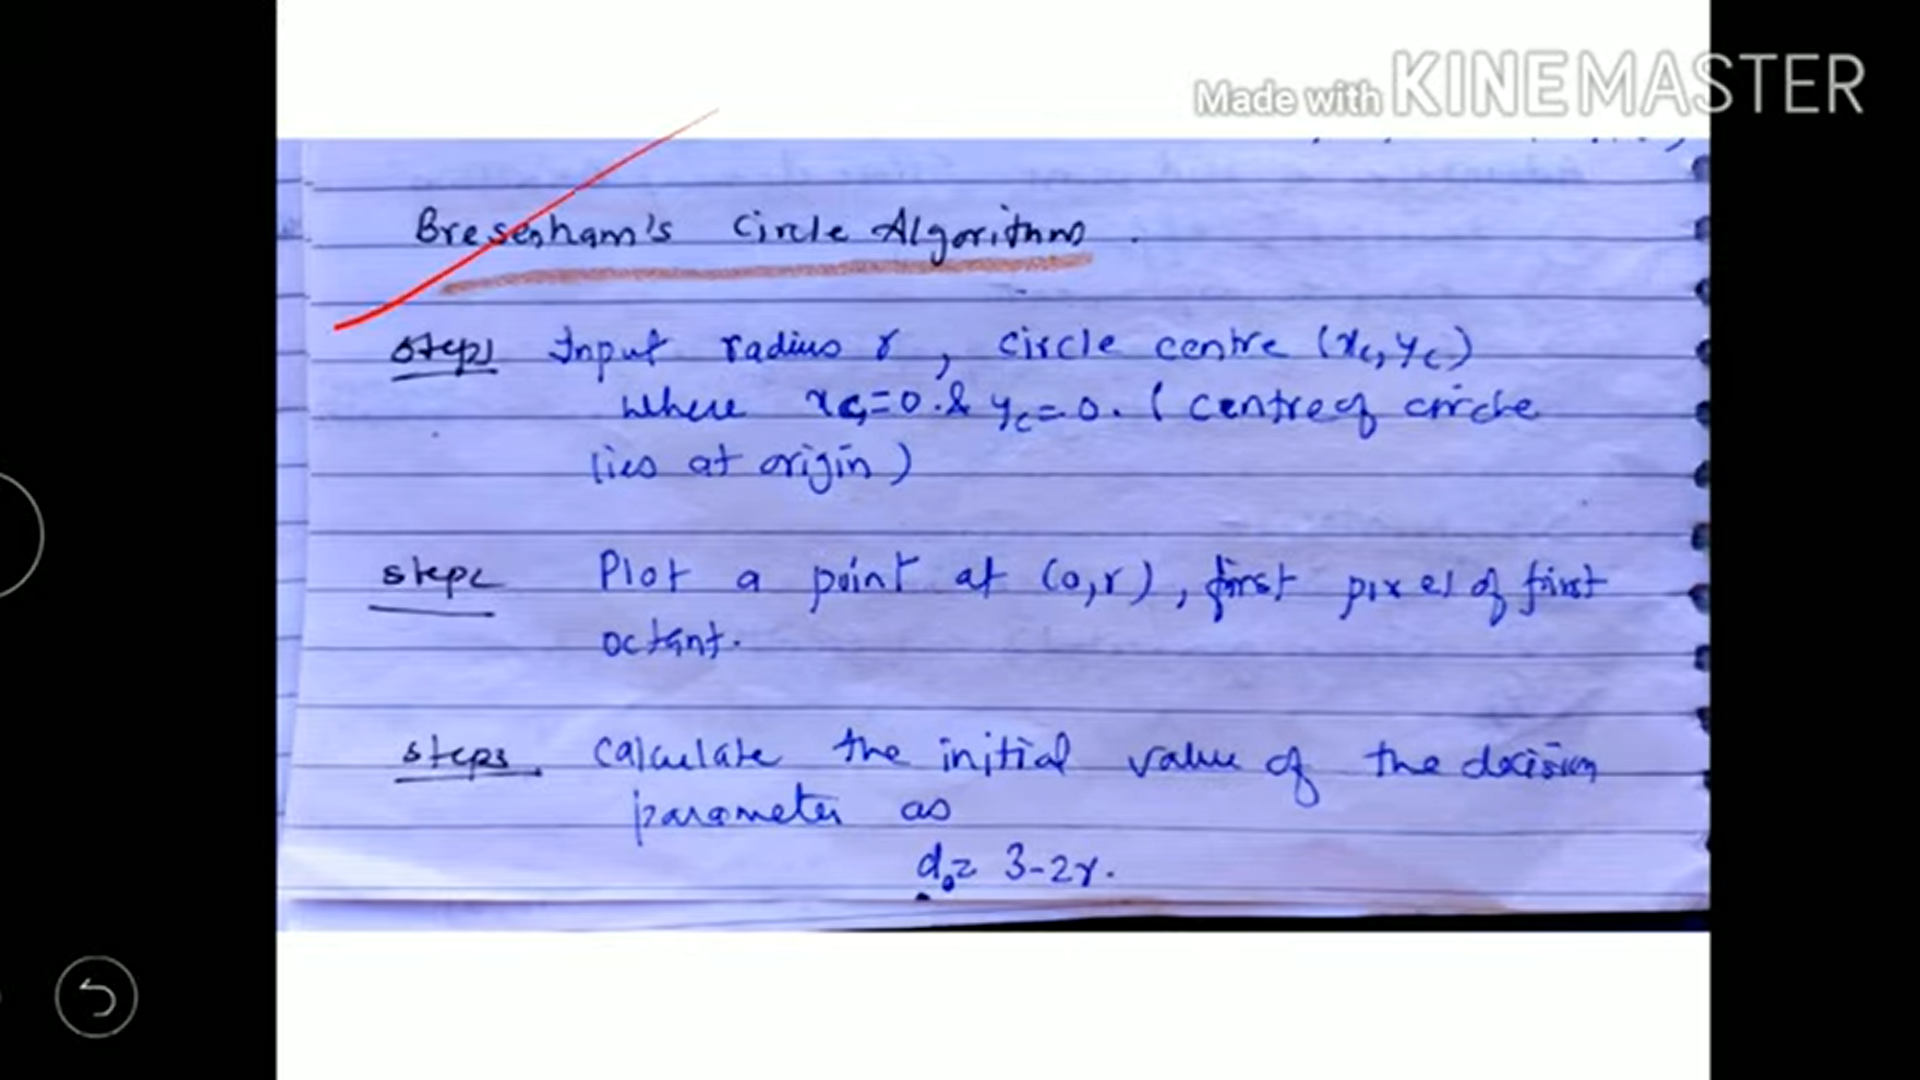 Made with KINEMASTER
Bresenham's Circle Algorithm.
Step1 Input radius r, circle centre (xc, yc)
where xc=0 & yc=0. (centre of circle
lies at origin)
step2 Plot a point at (0,r), first pixel of first
octant.
step3 Calculate the initial value of the decision
parameter as
d0= 3-2r.